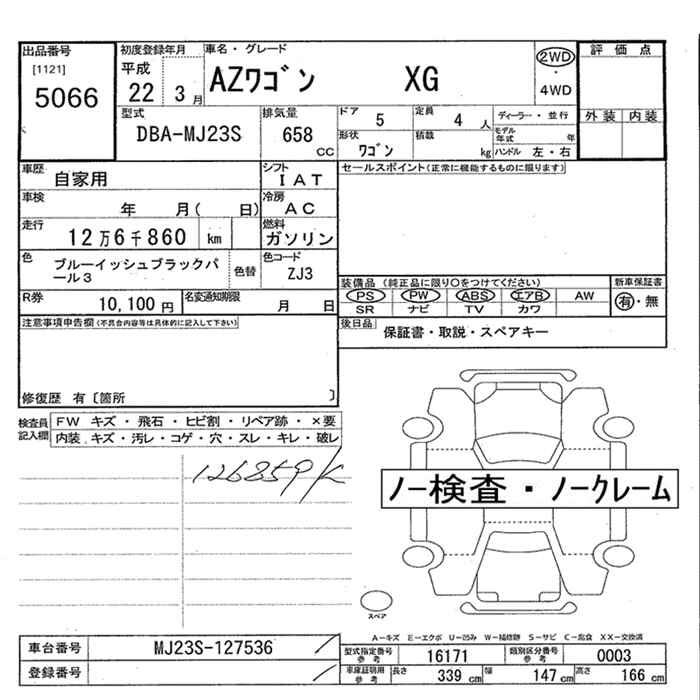 出品番号
[1121]
5066
初度登録年月
平成
22 3月
車名・グレード
AZワゴン XG
2WD
・
4WD
評価点
外装 内装
型式
DBA-MJ23S
排気量
658
CC
ドア
5
定員
4 人
形状
ワゴン
積載
kg
ディーラー・並行
モデル年式 年
ハンドル 左・右
車歴
自家用
シフト
IAT
車検
年 月( 日)
冷房
AC
走行
12万6千860 km
燃料
ガソリン
色
ブルーイッシュブラックパール3
色替
色コード
ZJ3
R券
10,100 円
名変通知期限
月 日
セールスポイント(正常に機能するものに限ります)
装備品 (純正品に限り○をつけてください)
PS PW ABS エアB AW
SR ナビ TV カワ
新車保証書
有・無
後日品
保証書・取説・スペアキー
注意事項申告欄(不具合内容等は具体的に記入して下さい)
修復歴 有〔箇所 〕
検査員記入欄
FW キズ・飛石・ヒビ割・リペア跡・×要
内装 キズ・汚レ・コゲ・穴・スレ・キレ・破レ
126859K
ノー検査・ノークレーム
スペア
A−キズ E−エクボ U−凹み W−補修跡 S−サビ C−腐食 XX−交換済
車台番号
MJ23S-127536
登録番号
型式指定番号
参考
16171
類別区分番号
参考
0003
車庫証明用
参考
長さ 339 cm
幅 147 cm
高さ 166 cm